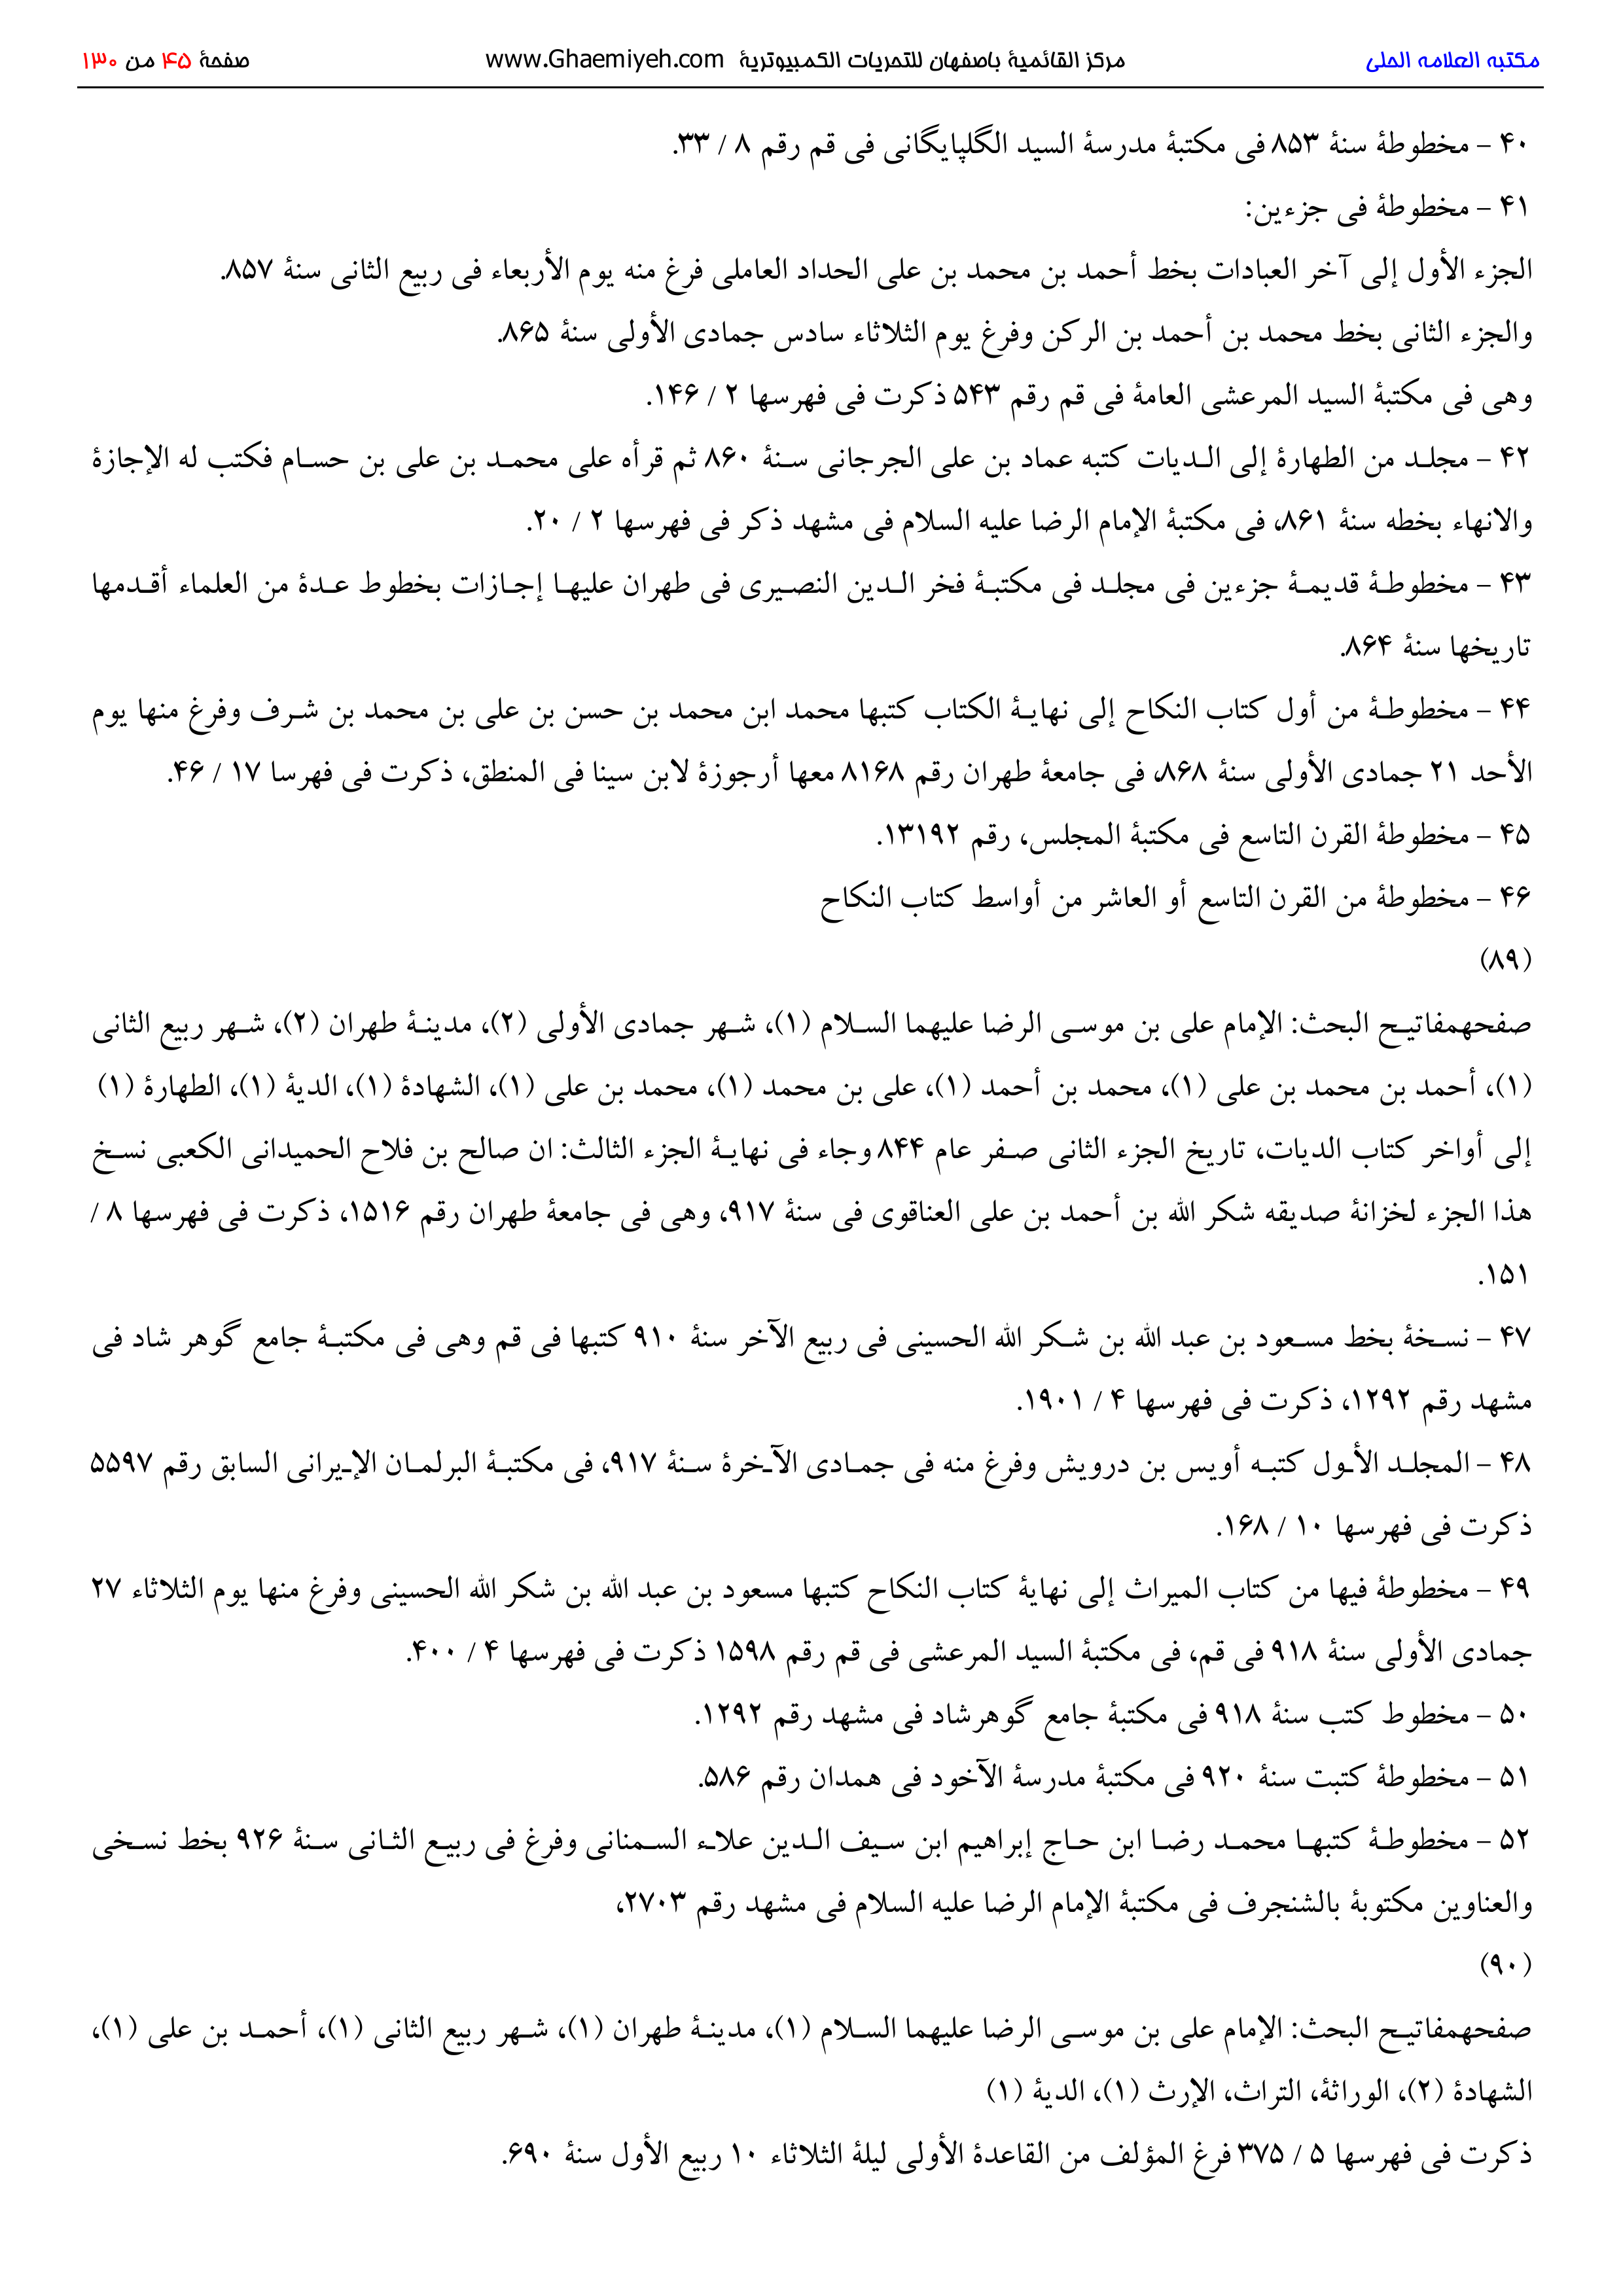 مكتبه العلامه الحلی مركز القائمیۀ باصفهان للتحریات الكمبیوتریۀ www.Ghaemiyeh.com صفحۀ ۴۵ من ۱۳۰
۴۰ - مخطوطۀ سنۀ ۸۵۳ فی مكتبۀ مدرسۀ السید الگلپایگانی فی قم رقم ۸ / ۳۳.
۴۱ - مخطوطۀ فی جزءین:
الجزء الأول إلی آخر العبادات بخط أحمد بن محمد بن علی الحداد العاملی فرغ منه یوم الأربعاء فی ربیع الثانی سنۀ ۸۵۷.
والجزء الثانی بخط محمد بن أحمد بن الركن وفرغ یوم الثلاثاء سادس جمادی الأولی سنۀ ۸۶۵.
وهی فی مكتبۀ السید المرعشی العامۀ فی قم رقم ۵۴۳ ذكرت فی فهرسها ۲ / ۱۴۶.
۴۲ - مجلد من الطهارۀ إلی الدیات كتبه عماد بن علی الجرجانی سنۀ ۸۶۰ ثم قرأه علی محمد بن علی بن حسام فكتب له الإجازۀ
والانهاء بخطه سنۀ ۸۶۱، فی مكتبۀ الإمام الرضا علیه السلام فی مشهد ذكر فی فهرسها ۲ / ۲۰.
۴۳ - مخطوطۀ قدیمۀ جزءین فی مجلد فی مكتبۀ فخر الدین النصیری فی طهران علیها إجازات بخطوط عدۀ من العلماء أقدمها
تاریخها سنۀ ۸۶۴.
۴۴ - مخطوطۀ من أول كتاب النكاح إلی نهایۀ الكتاب كتبها محمد ابن محمد بن حسن بن علی بن محمد بن شرف وفرغ منها یوم
الأحد ۲۱ جمادی الأولی سنۀ ۸۶۸، فی جامعۀ طهران رقم ۸۱۶۸ معها أرجوزۀ لابن سینا فی المنطق، ذكرت فی فهرسا ۱۷ / ۴۶.
۴۵ - مخطوطۀ القرن التاسع فی مكتبۀ المجلس، رقم ۱۳۱۹۲.
۴۶ - مخطوطۀ من القرن التاسع أو العاشر من أواسط كتاب النكاح
(۸۹)
صفحهمفاتیح البحث: الإمام علی بن موسی الرضا علیهما السلام (۱)، شهر جمادی الأولی (۲)، مدینۀ طهران (۲)، شهر ربیع الثانی
(۱)، أحمد بن محمد بن علی (۱)، محمد بن أحمد (۱)، علی بن محمد (۱)، محمد بن علی (۱)، الشهادۀ (۱)، الدیۀ (۱)، الطهارۀ (۱)
إلی أواخر كتاب الدیات، تاریخ الجزء الثانی صفر عام ۸۴۴ وجاء فی نهایۀ الجزء الثالث: ان صالح بن فلاح الحمیدانی الكعبی نسخ
هذا الجزء لخزانۀ صدیقه شكر الله بن أحمد بن علی العناقوی فی سنۀ ۹۱۷، وهی فی جامعۀ طهران رقم ۱۵۱۶، ذكرت فی فهرسها ۸ /
۱۵۱.
۴۷ - نسخۀ بخط مسعود بن عبد الله بن شكر الله الحسینی فی ربیع الآخر سنۀ ۹۱۰ كتبها فی قم وهی فی مكتبۀ جامع گوهر شاد فی
مشهد رقم ۱۲۹۲، ذكرت فی فهرسها ۴ / ۱۹۰۱.
۴۸ - المجلد الأول كتبه أویس بن درویش وفرغ منه فی جمادی الآخرۀ سنۀ ۹۱۷، فی مكتبۀ البرلمان الإیرانی السابق رقم ۵۵۹۷
ذكرت فی فهرسها ۱۰ / ۱۶۸.
۴۹ - مخطوطۀ فیها من كتاب المیراث إلی نهایۀ كتاب النكاح كتبها مسعود بن عبد الله بن شكر الله الحسینی وفرغ منها یوم الثلاثاء ۲۷
جمادی الأولی سنۀ ۹۱۸ فی قم، فی مكتبۀ السید المرعشی فی قم رقم ۱۵۹۸ ذكرت فی فهرسها ۴ / ۴۰۰.
۵۰ - مخطوط كتب سنۀ ۹۱۸ فی مكتبۀ جامع گوهرشاد فی مشهد رقم ۱۲۹۲.
۵۱ - مخطوطۀ كتبت سنۀ ۹۲۰ فی مكتبۀ مدرسۀ الآخود فی همدان رقم ۵۸۶.
۵۲ - مخطوطۀ كتبها محمد رضا ابن حاج إبراهیم ابن سیف الدین علاء السمنانی وفرغ فی ربیع الثانی سنۀ ۹۲۶ بخط نسخی
والعناوین مكتوبۀ بالشنجرف فی مكتبۀ الإمام الرضا علیه السلام فی مشهد رقم ۲۷۰۳،
(۹۰)
صفحهمفاتیح البحث: الإمام علی بن موسی الرضا علیهما السلام (۱)، مدینۀ طهران (۱)، شهر ربیع الثانی (۱)، أحمد بن علی (۱)،
الشهادۀ (۲)، الوراثۀ، التراث، الإرث (۱)، الدیۀ (۱)
ذكرت فی فهرسها ۵ / ۳۷۵ فرغ المؤلف من القاعدۀ الأولی لیلۀ الثلاثاء ۱۰ ربیع الأول سنۀ ۶۹۰.